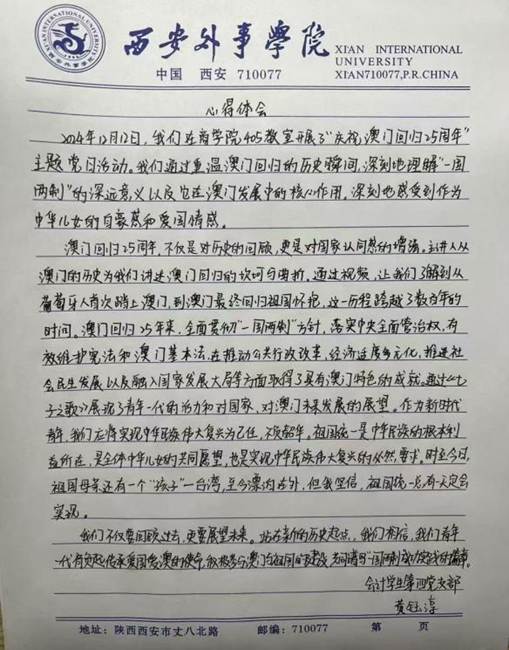 XI'AN INTERNATIONAL UNIVERSITY
西安外事学院
中国 西安 710077
XIAN INTERNATIONAL
UNIVERSITY
XIAN710077,P.R.CHINA
心得体会
2024年12月12日,我们在商学院405教室开展了"庆祝澳门回归25周年"
主题党日活动。我们通过重温澳门回归的历史瞬间,深刻地理解"一国
两制"的深远意义以及它在澳门发展中的核心作用,深刻地感受到作为
中华儿女的自豪感和爱国情感。
澳门回归25周年,不仅是对历史的回顾,更是对国家认同感的增强。主讲人从
澳门的历史为我们讲述澳门回归的坎坷与曲折。通过视频,让我们了解到从
葡萄牙人首次踏上澳门,到澳门最终回归祖国怀抱,这一历程跨越了数百年的
时间。澳门回归25年来,全面贯彻"一国两制"方针,落实中央全面管治权,有
效维护宪法和澳门基本法,在推动公共行政改革,经济适度多元化,推进社
会民生发展,以及融入国家发展大局等方面取得了具有澳门特色的成就。通过《七
子之歌》展现了青年一代的活力和对国家,对澳门未来发展的展望。作为新时代
青年,我们应将实现中华民族伟大复兴为己任,不负韶年。祖国统一是中华民族的根本利
益所在,是全体中华儿女的共同愿望,也是实现中华民族伟大复兴的必然要求。时至今日,
祖国母亲还有一个"孩子"—台湾,至今漂泊在外,但我坚信,祖国统一必有一天会
实现。
我们不仅要回顾过去,更要展望未来。站在新的历史起点,我们相信,我们青年
一代有负起传承爱国爱澳的使命,积极参与澳门与祖国的建设,
会计学生第四党支部
黄钰淳
地址:陕西西安市丈八北路 邮编:710077 第 页